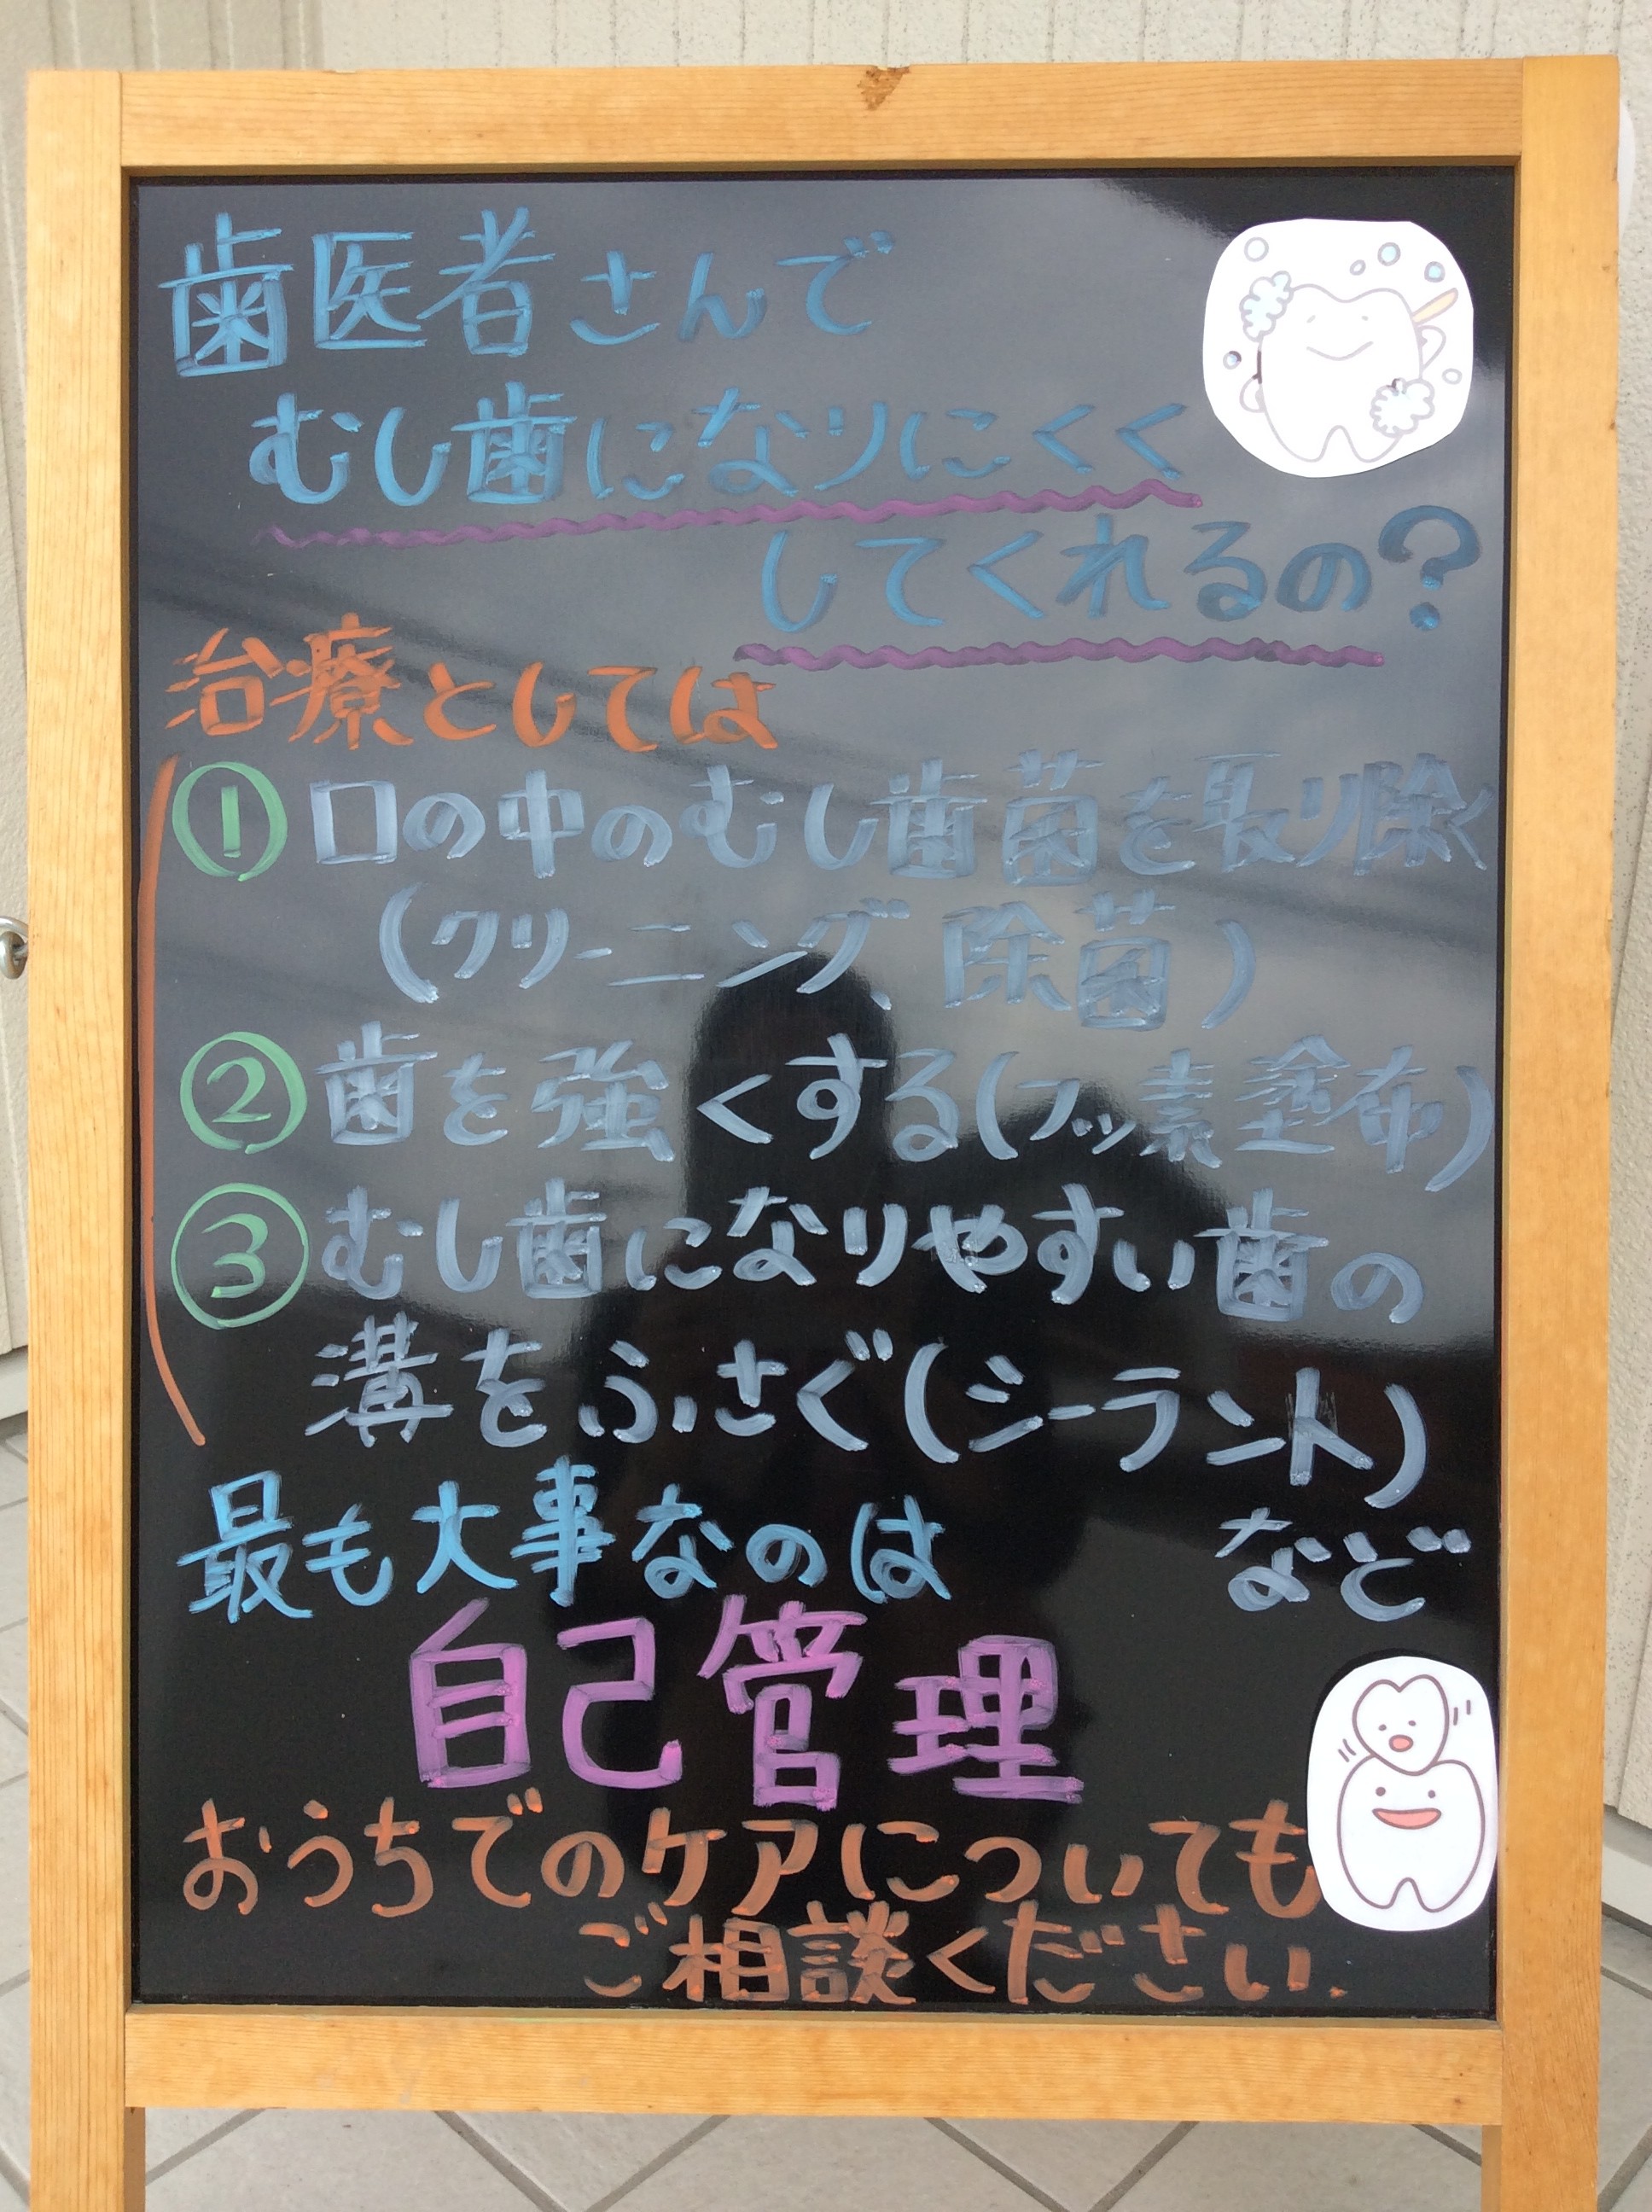 歯医者さんで
むし歯になりにくく
してくれるの?
治療としては
① 口の中のむし歯菌を取り除く
(クリーニング、除菌)
② 歯を強くする(フッ素塗布)
③ むし歯になりやすい歯の
溝をふさぐ(シーラント)
など
最も大事なのは
自己管理
おうちでのケアについても
ご相談ください.